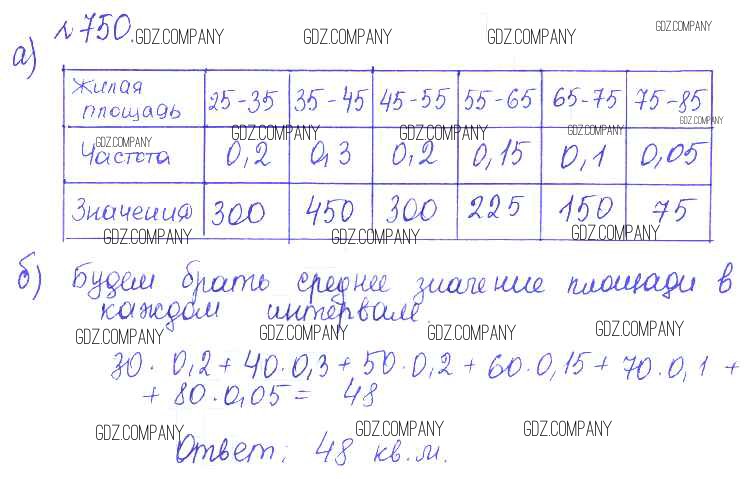 №750. GDZ.COMPANY GDZ.COMPANY GDZ.COMPANY GDZ.COMPANY
а)
Жилая площадь 25-35 35-45 45-55 55-65 65-75 75-85
GDZ.COMPANY GDZ.COMPANY GDZ.COMPANY GDZ.COMPANY GDZ.COMPANY
Частота 0,2 0,3 0,2 0,15 0,1 0,05
Значения 300 450 300 225 150 75
GDZ.COMPANY GDZ.COMPANY GDZ.COMPANY
б) Будем брать среднее значение площади в
каждом интервале.
GDZ.COMPANY GDZ.COMPANY GDZ.COMPANY GDZ.COMPANY
30·0,2+40·0,3+50·0,2+60·0,15+70·0,1+
+80·0,05= 48
GDZ.COMPANY GDZ.COMPANY GDZ.COMPANY
Ответ: 48 кв.м.